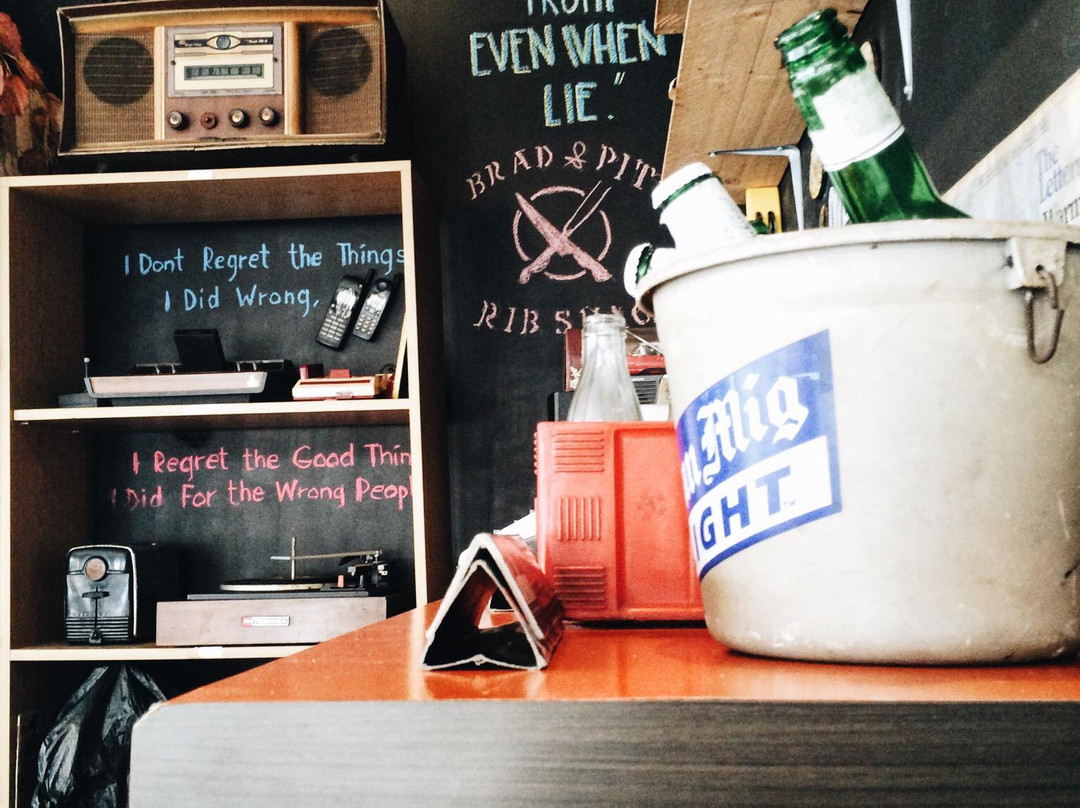 EVEN WHEN
LIE."
BRAD & PIT
RIB
I Dont Regret the Things
I Did Wrong,
I Regret the Good Thin
I Did For the Wrong Peopl
m Mig
IGHT™
The